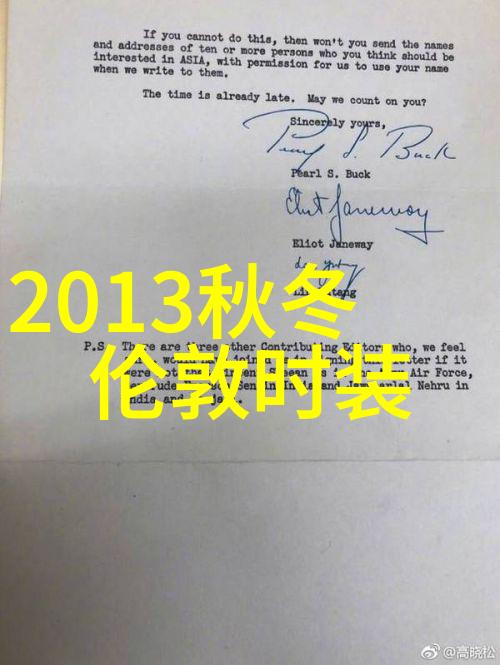 If you cannot do this, then won't you send the names
and addresses of ten or more persons who you think should be
interested in ASIA, with permission for us to use your name
when we write to them.
The time is already late. May we count on you?
Sincerely yours,
Pearl S. Buck
Pearl S. Buck
Eliot Janeway
Eliot Janeway
2013秋冬
伦敦时装
P.S. There are three other Contributing Editors who, we feel
letter if it
were not Air Force,
in India and Nehru in
India and
@高晓松